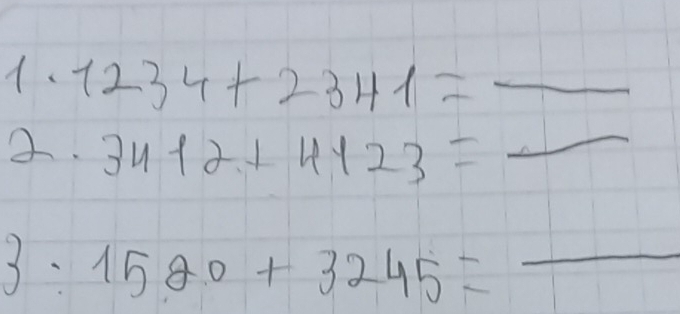 1. 1234 + 2341 = ___
2. 3412 + 4123 = ___
3. 1520 + 3245 = ___